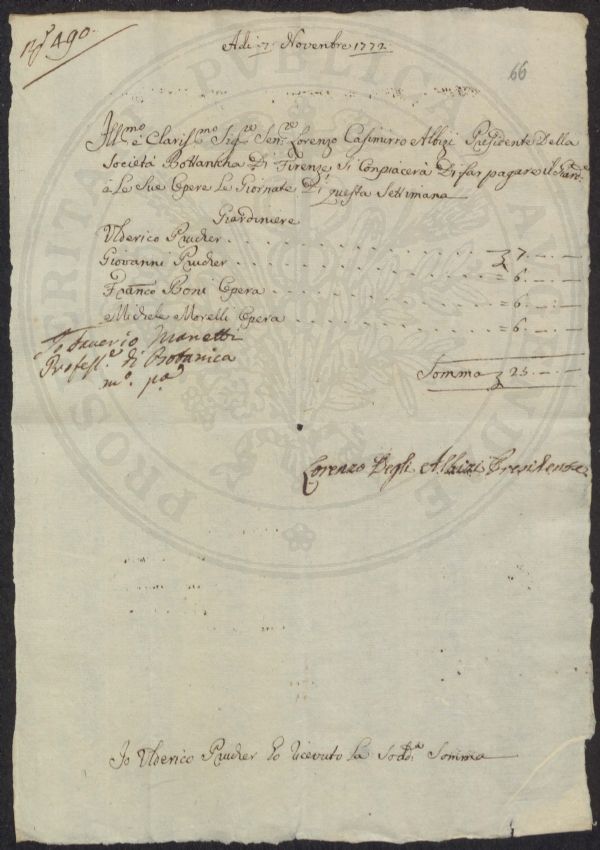 N.º 490.
Adi 7 Novembre 1772
66
Ill.mo e Claris.mo Sig.re Sen.re Lorenzo Casimirro Albizi Presidente Della
Società Bottanicha Di Firenze Si Conpiacerà Di far pagare il Giard.e
e Le Sue Opere Le Giornate Di questa Settimana
Giardiniere
Ulderico Prucker . . . 7 . — . —
Giovanni Prucker . . . = 6 . — . —
Fran.co Boni Opera . . . = 6 . — . —
Michele Morelli Opera . . . = 6 . — . —
Io Saverio Manetti
Profess.e di Botanica
m.o p.a
Somma 25 . — . —
Lorenzo Degli Albizi Presidente
Io Ulderico Prucker ho ricevuto La Sodd.a Somma
PROSPERITATI PUBLICAE AUGENDAE